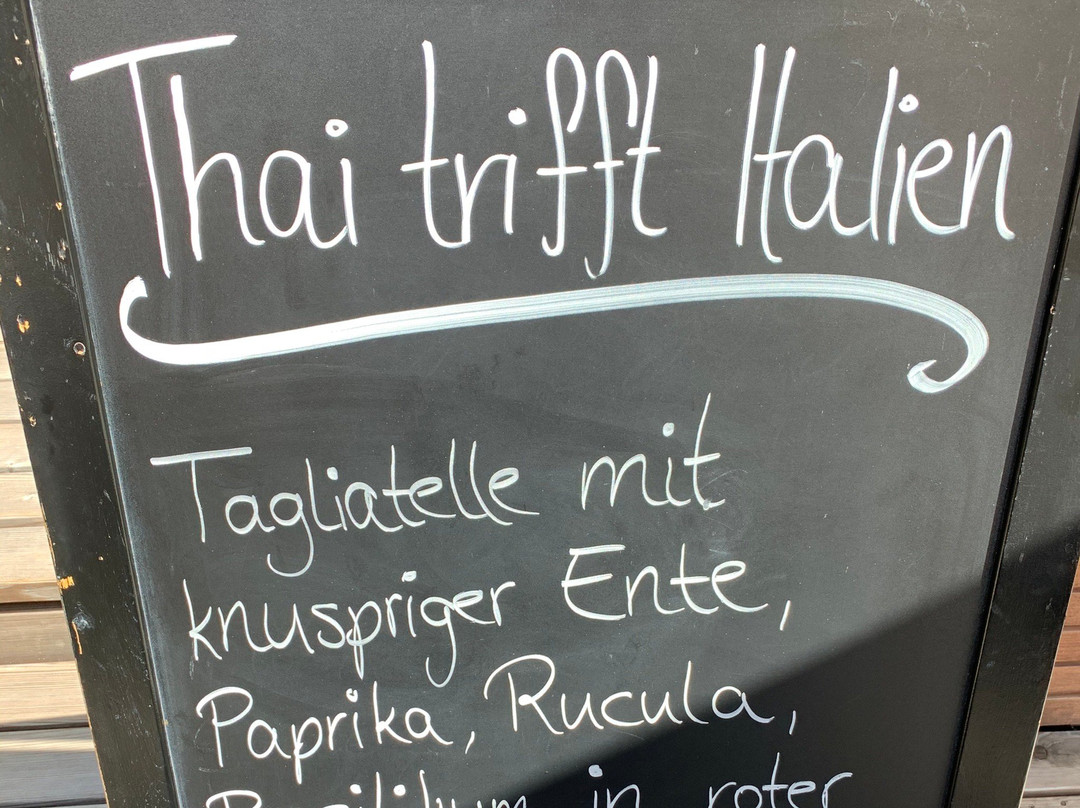 Thai trifft Italien
Tagliatelle mit
knuspriger Ente,
Paprika, Rucula,
in roter